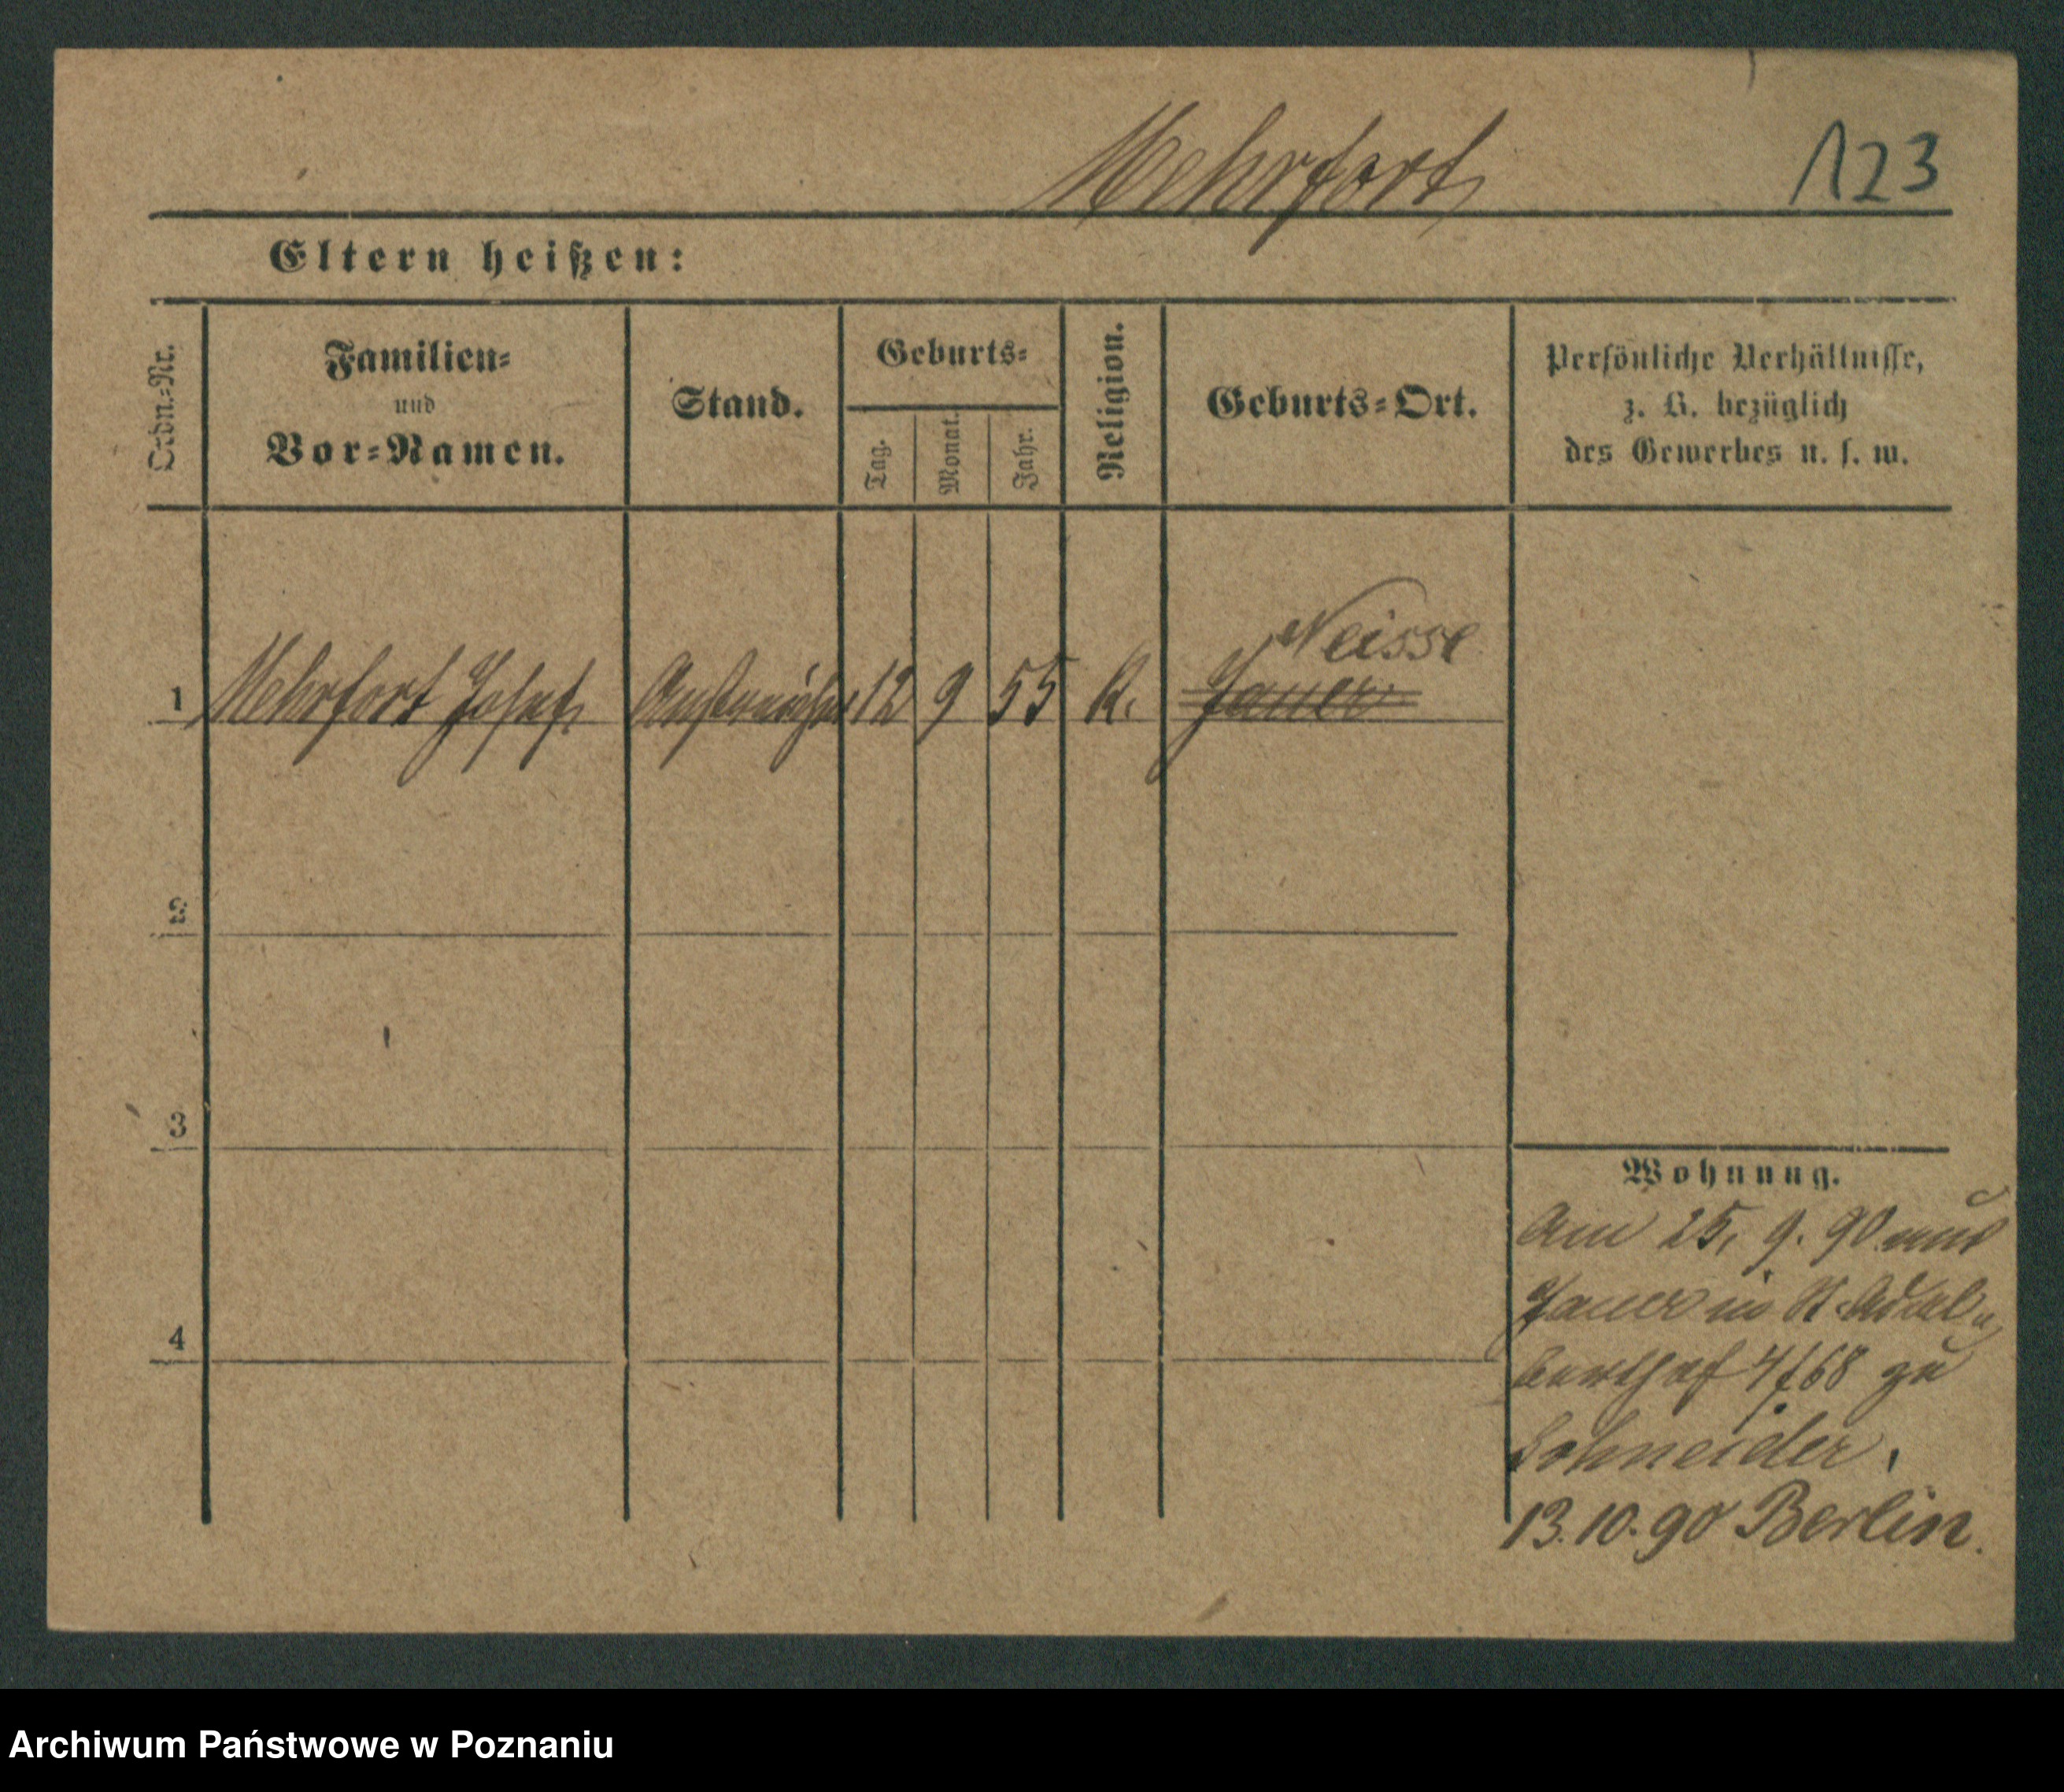 Mehrfort 123
Eltern heißen:
Ordn.=Nr.
Familien=
und
Vor=Namen.
Stand.
Geburts=
Tag.
Monat.
Jahr.
Religion.
Geburts=Ort.
Persönliche Verhältnisse,
z. B. bezüglich
des Gewerbes u. s. w.
Neisse
1 Mehrfort Josef 12 9 55 K. Jauer
2
3
4
Wohnung.
Am 25. 9. 90 aus
Jauer in St. Adal„
berthof 4/68 zu
Schneider.
13.10.90 Berlin.
Archiwum Państwowe w Poznaniu